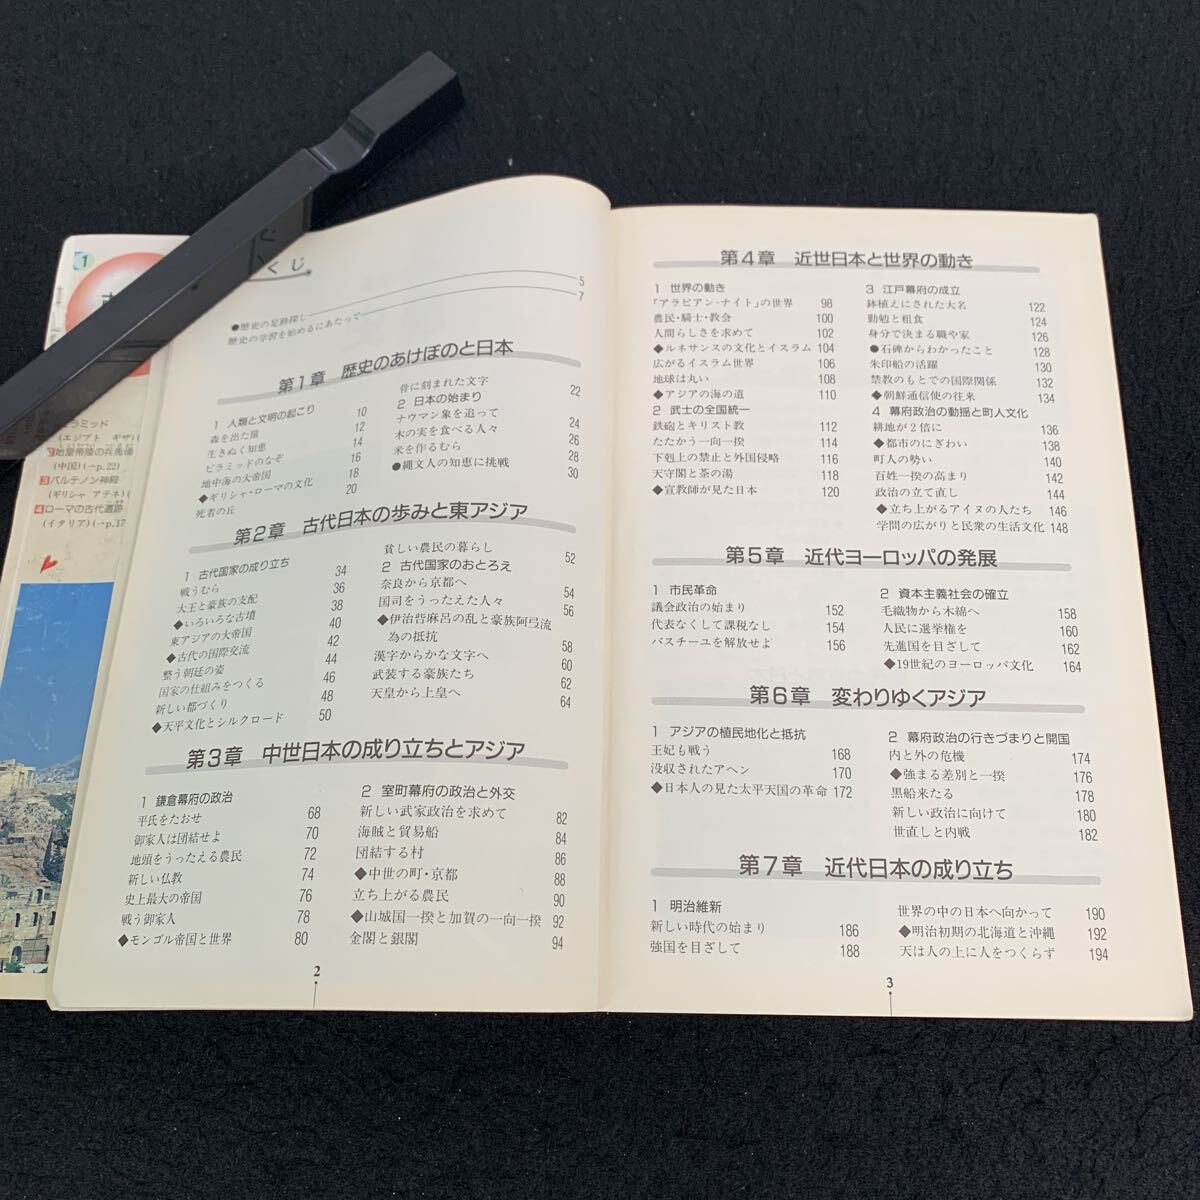 1
ピラミッド
(エジプト ギザ)(
始皇帝陵の兵馬俑
(中国)(→p.22)
3 パルテノン神殿
(ギリシャ アテネ)(
4 ローマの古代遺跡
(イタリア)(→p.17
くじ
●歴史の足跡探し 5
歴史の学習を始めるにあたって 7
第1章 歴史のあけぼのと日本
1 人類と文明の起こり
森を出た猿 10
生きぬく知恵 12
ピラミッドのなぞ 14
地中海の大帝国 16
◆ギリシャ・ローマの文化 18
死者の丘 20
骨に刻まれた文字 22
2 日本の始まり
ナウマン象を追って 24
木の実を食べる人々 26
米を作るむら 28
●縄文人の知恵に挑戦 30
第2章 古代日本の歩みと東アジア
1 古代国家の成り立ち
戦うむら 34
大王と豪族の支配 36
◆いろいろな古墳 38
東アジアの大帝国 40
◆古代の国際交流 42
整う朝廷の姿 44
国家の仕組みをつくる 46
新しい都づくり 48
◆天平文化とシルクロード 50
貧しい農民の暮らし 52
2 古代国家のおとろえ
奈良から京都へ 54
国司をうったえた人々 56
◆伊治呰麻呂の乱と豪族阿弖流
為の抵抗 58
漢字からかな文字へ 60
武装する豪族たち 62
天皇から上皇へ 64
第3章 中世日本の成り立ちとアジア
1 鎌倉幕府の政治
平氏をたおせ 68
御家人は団結せよ 70
地頭をうったえる農民 72
新しい仏教 74
史上最大の帝国 76
戦う御家人 78
◆モンゴル帝国と世界 80
2 室町幕府の政治と外交
新しい武家政治を求めて 82
海賊と貿易船 84
団結する村 86
◆中世の町・京都 88
立ち上がる農民 90
◆山城国一揆と加賀の一向一揆 92
金閣と銀閣 94
2
第4章 近世日本と世界の動き
1 世界の動き
『アラビアン-ナイト』の世界 98
農民・騎士・教会 100
人間らしさを求めて 102
◆ルネサンスの文化とイスラム 104
広がるイスラム世界 106
地球は丸い 108
◆アジアの海の道 110
2 武士の全国統一
鉄砲とキリスト教 112
たたかう一向一揆 114
下剋上の禁止と外国侵略 116
天守閣と茶の湯 118
◆宣教師が見た日本 120
3 江戸幕府の成立
鉢植えにされた大名 122
勤勉と粗食 124
身分で決まる職や家 126
●石碑からわかったこと 128
朱印船の活躍 130
禁教のもとでの国際関係 132
◆朝鮮通信使の往来 134
4 幕府政治の動揺と町人文化
耕地が2倍に 136
◆都市のにぎわい 138
町人の勢い 140
百姓一揆の高まり 142
政治の立て直し 144
◆立ち上がるアイヌの人たち 146
学問の広がりと民衆の生活文化 148
第5章 近代ヨーロッパの発展
1 市民革命
議会政治の始まり 152
代表なくして課税なし 154
バスチーユを解放せよ 156
2 資本主義社会の確立
毛織物から木綿へ 158
人民に選挙権を 160
先進国を目ざして 162
◆19世紀のヨーロッパ文化 164
第6章 変わりゆくアジア
1 アジアの植民地化と抵抗
王妃も戦う 168
没収されたアヘン 170
◆日本人の見た太平天国の革命 172
2 幕府政治の行きづまりと開国
内と外の危機 174
◆強まる差別と一揆 176
黒船来たる 178
新しい政治に向けて 180
世直しと内戦 182
第7章 近代日本の成り立ち
1 明治維新
新しい時代の始まり 186
強国を目ざして 188
世界の中の日本へ向かって 190
◆明治初期の北海道と沖縄 192
天は人の上に人をつくらず 194
3